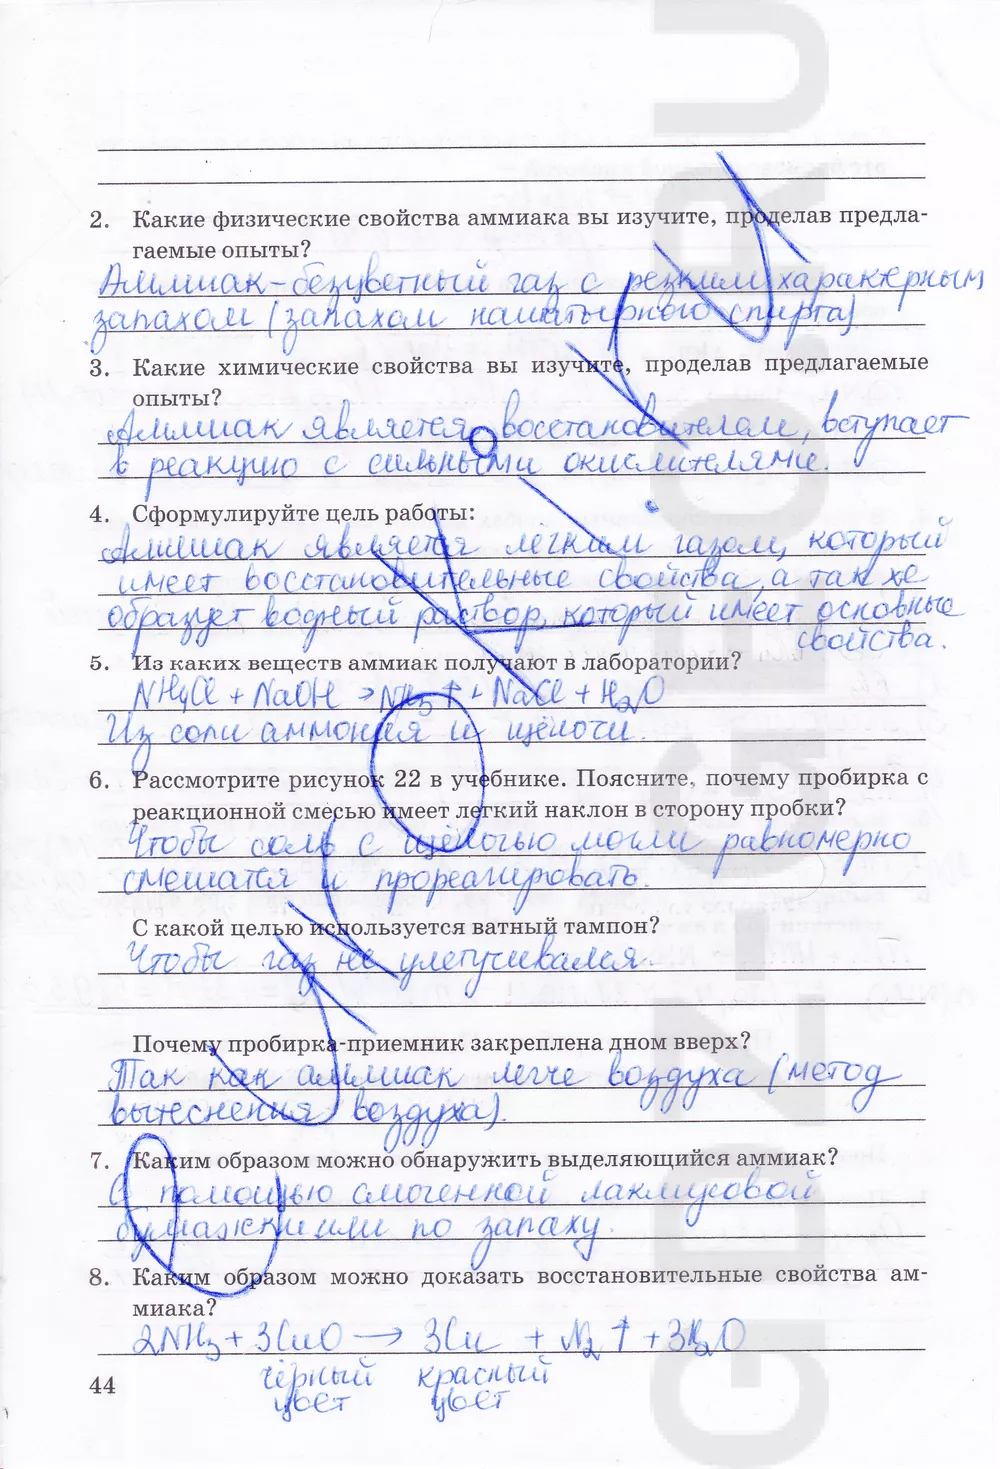 2. Какие физические свойства аммиака вы изучите, проделав предла-
гаемые опыты?
Аммиак - безцветный газ с резким характерным
запахом (запахом нашатырного спирта)
3. Какие химические свойства вы изучите, проделав предлагаемые
опыты?
Аммиак является восстановителем, вступает
в реакцию с сильными окислителями.
4. Сформулируйте цель работы:
Аммиак является легким газом, который
имеет восстановительные свойства, а так же
образует водный раствор, который имеет основные
свойства.
5. Из каких веществ аммиак получают в лаборатории?
NH4Cl + NaOH → NH3↑ + NaCl + H2O
Из соли аммония и щёлочи.
6. Рассмотрите рисунок 22 в учебнике. Поясните, почему пробирка с
реакционной смесью имеет легкий наклон в сторону пробки?
Чтобы соль с щёлочью могли равномерно
смешатся и прореагировать.
С какой целью используется ватный тампон?
Чтобы газ не улетучивался.
Почему пробирка-приемник закреплена дном вверх?
Так как аммиак легче воздуха (метод
вытеснения воздуха).
7. Каким образом можно обнаружить выделяющийся аммиак?
С помощью смоченной лакмусовой
бумажки или по запаху.
8. Каким образом можно доказать восстановительные свойства ам-
миака?
2NH3 + 3CuO → 3Cu + N2↑ + 3H2O
чёрный красный
цвет цвет
44
GDZ-GEO.RU